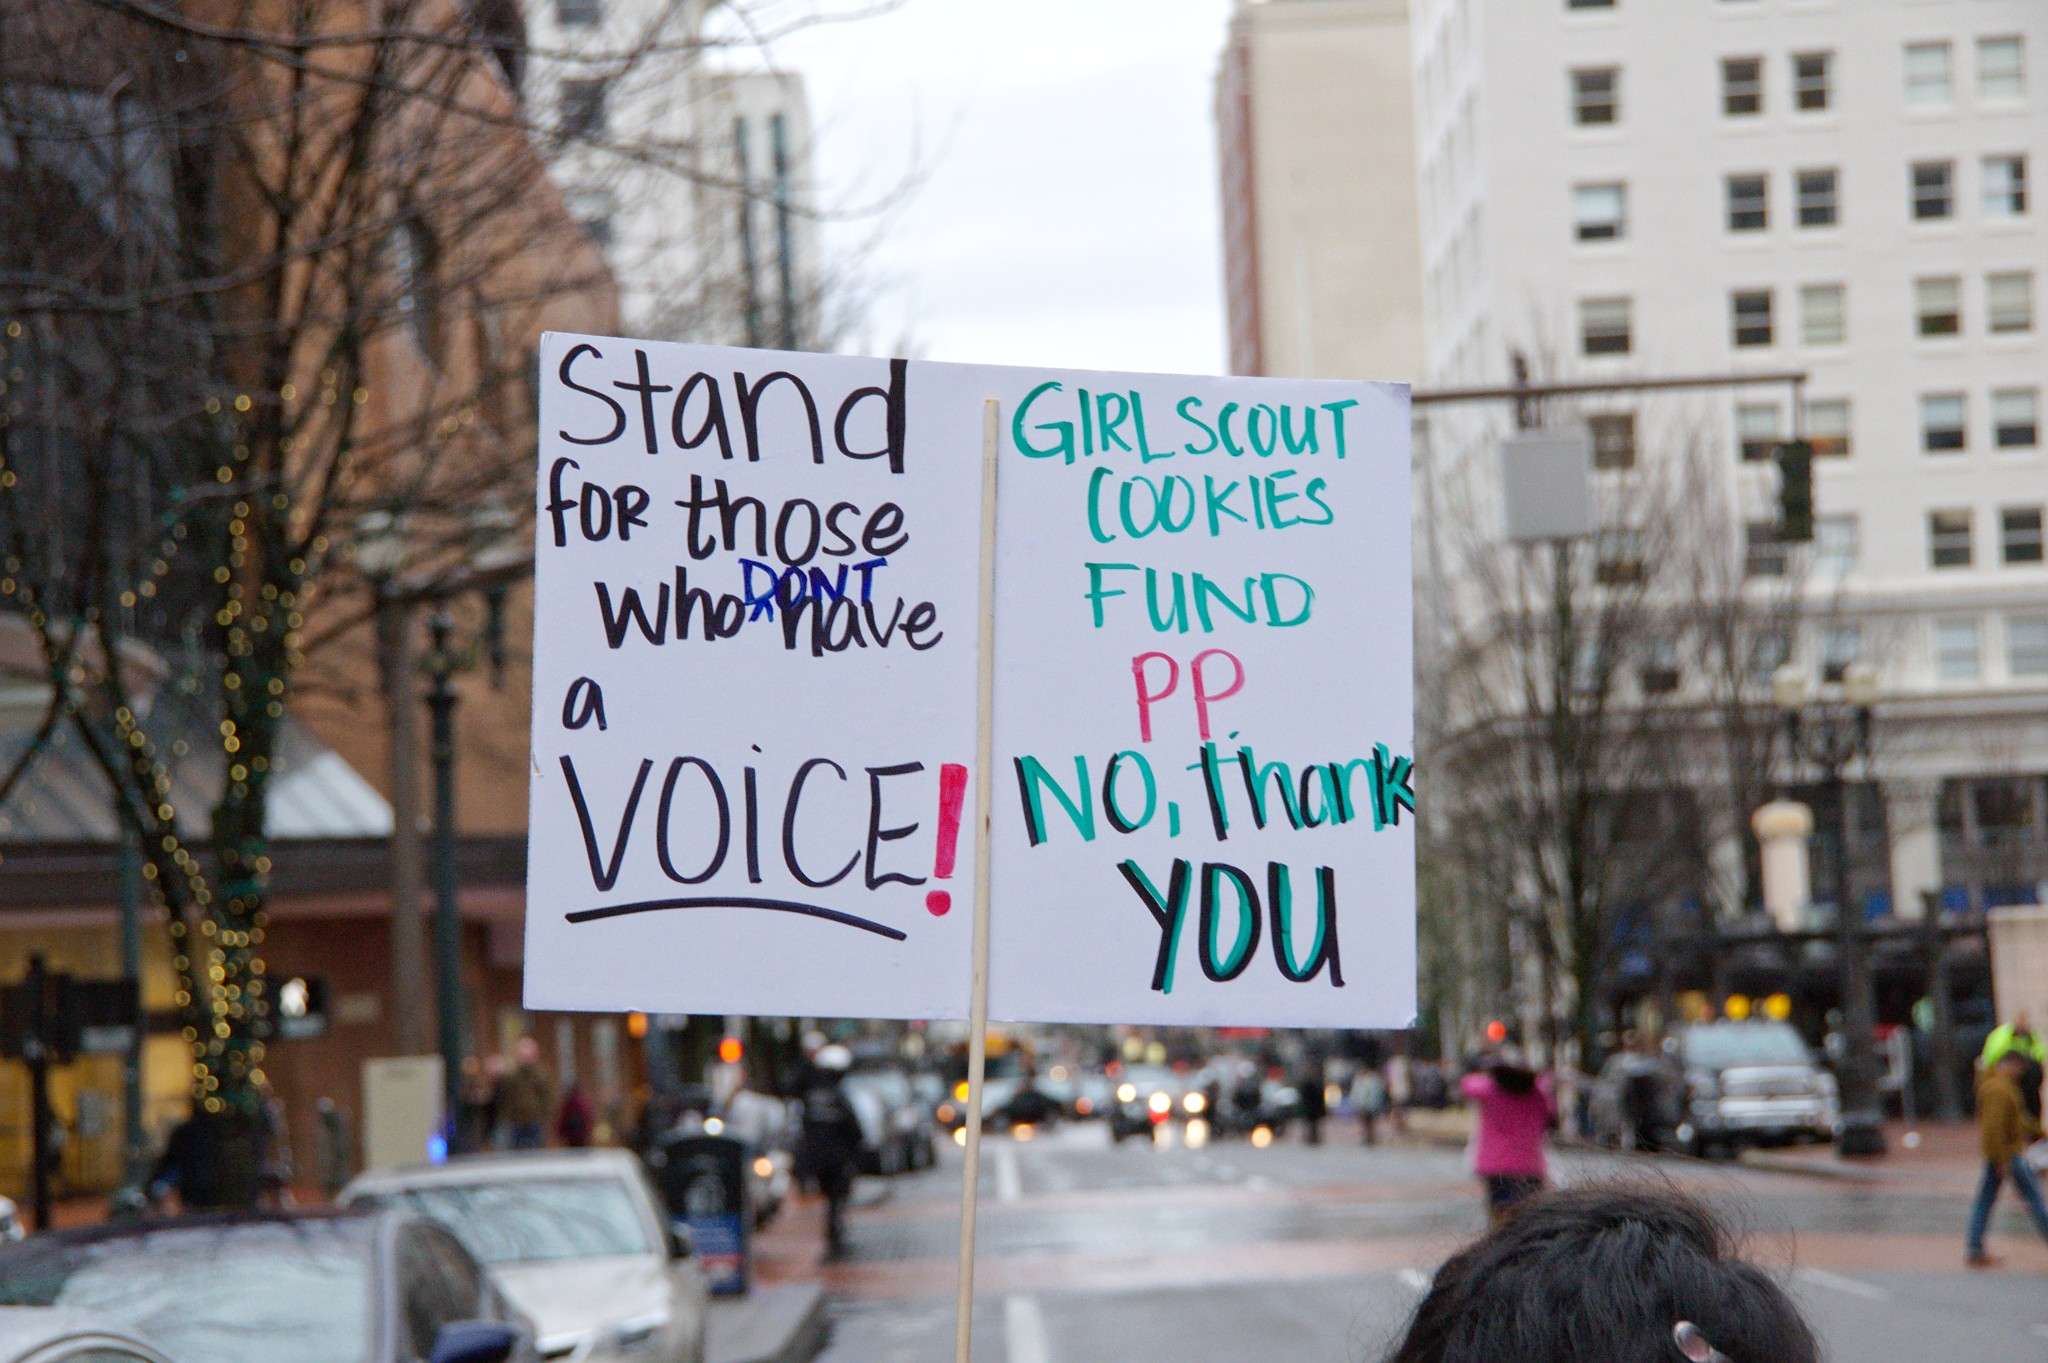 Stand
FOR those
who DONT have
a
VOiCE!
GIRL SCOUT
COOKIES
FUND
PP.
NO, thank
YOU